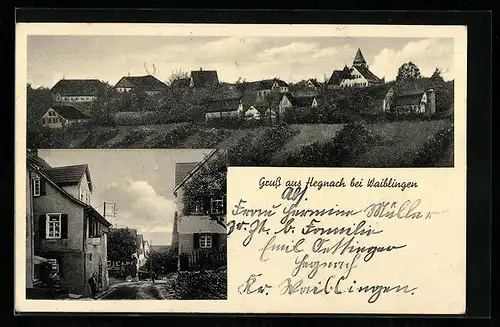 Gruß aus Hegnach bei Waiblingen
Abs.
Frau Hermine Müller
zr. Zt. b. Familie
Emil Oettinger
Hegnach
Kr. Waiblingen.